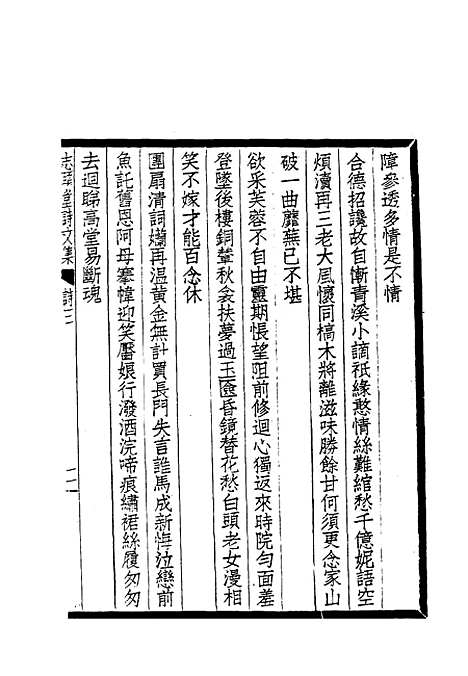 障參透多情是不情
合德招讒故自慚青溪小謫祇緣憨情絲難綰愁千億妮語空
煩瀆再三老大風懷同槁木將離滋味勝餘甘何須更念家山
破一曲蘼蕪已不堪
欲采芙蓉不自由靈期悵望阻前修迴心獨返來時院勻面羞
登墜後樓銅輦秋衾扶夢過玉奩昏鏡替花愁白頭老女漫相
笑不嫁才能百念休
團扇清詞嬾再温黄金無計買長門失言誰馬成新悖泣戀前
魚託舊恩阿母搴幃迎笑靨娘行潑酒浣啼痕繡裙絲履匆匆
去迴睇高堂易斷魂
詩文集 詩三